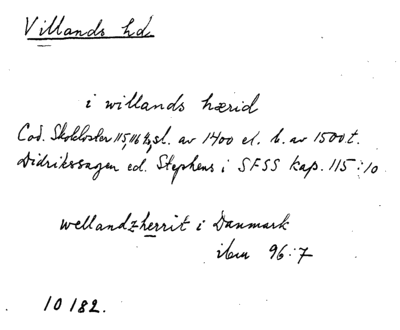 Villands hd.
i willands hærid
Cod. Skokloster 115, 116 sl. av 1400 el. b. av 1500 t.
Didrikssagen ed. Stephens i SFSS kap. 115:10
wellandzherrit i Danmark
ibm 96:7
10182.